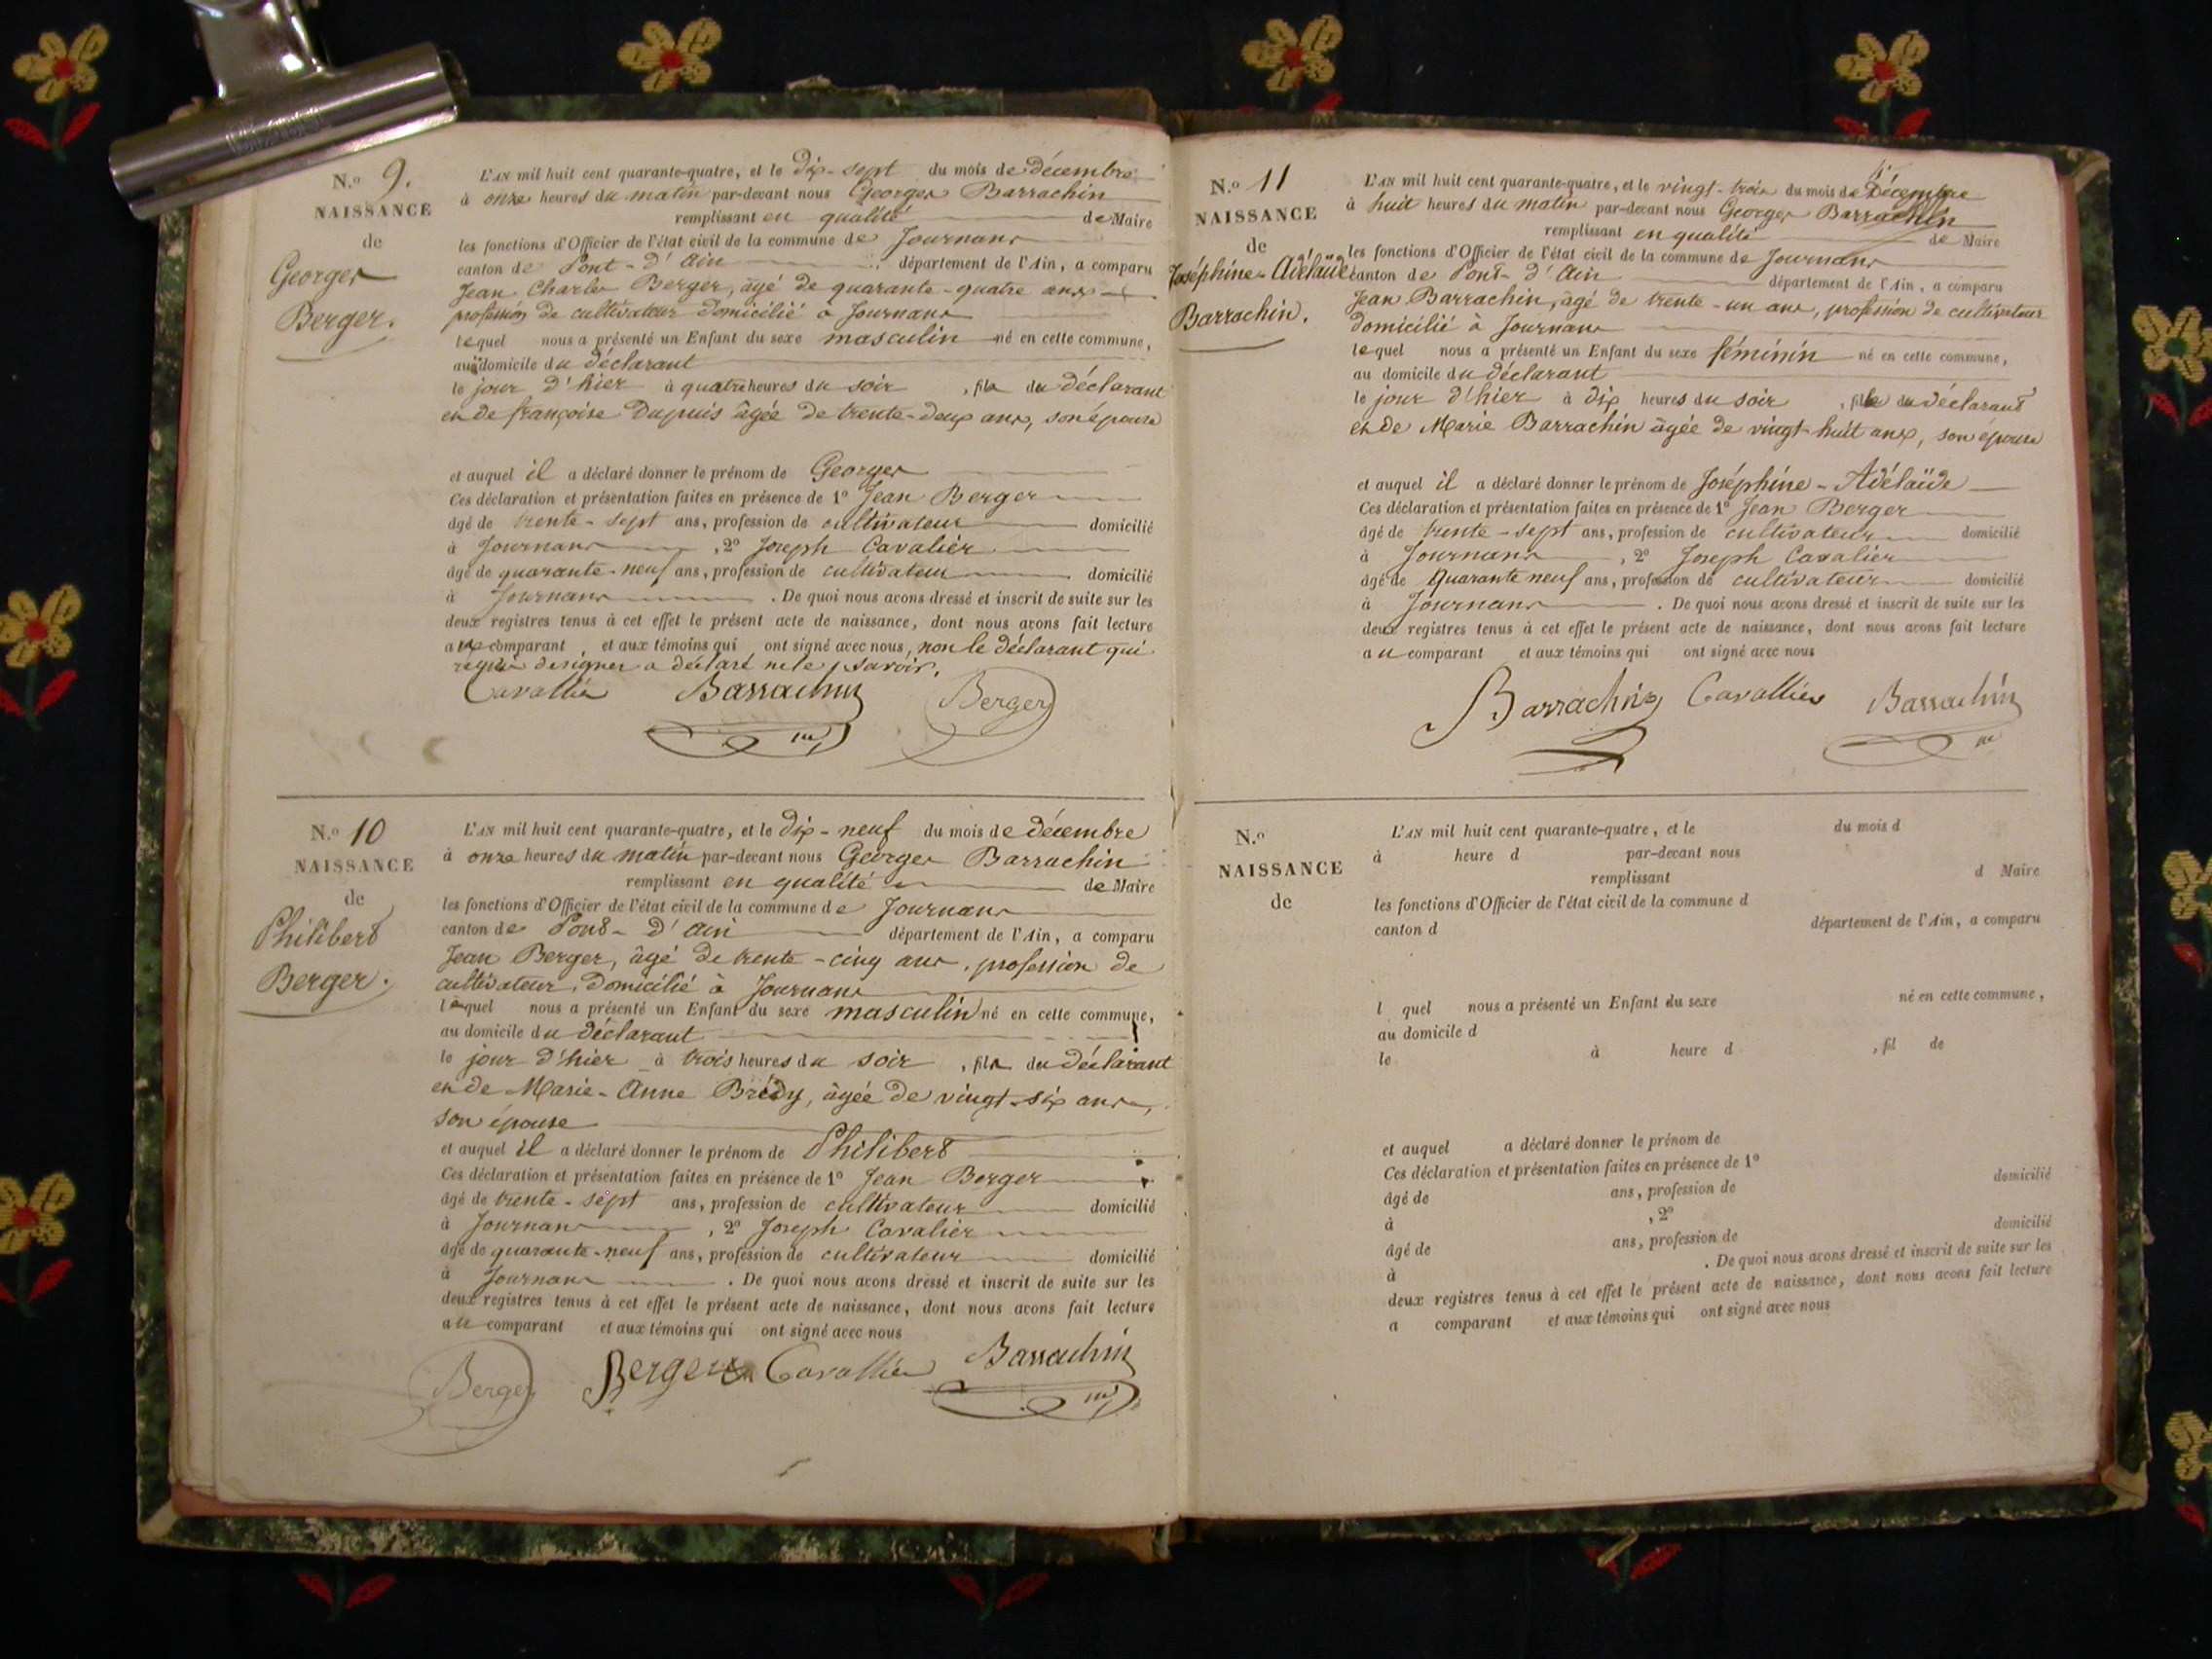 N.o 9.
NAISSANCE
de
Georges
Berger.
L'AN mil huit cent quarante-quatre, et le dix-sept du mois de décembre
à onze heures du matin par-devant nous Georges Barrachin
remplissant en qualité de Maire
les fonctions d'Officier de l'état civil de la commune de Journans
canton de Pont-d'Ain département de l'Ain, a comparu
Jean Charles Berger, âgé de quarante-quatre ans
profession de cultivateur domicilié à Journans
lequel nous a présenté un Enfant du sexe masculin né en cette commune,
au domicile du déclarant
le jour d'hier à quatre heures du soir, fils du déclarant
et de françoise Dupuis âgée de trente-deux ans, son épouse
et auquel il a déclaré donner le prénom de Georges
Ces déclaration et présentation faites en présence de 1o Jean Berger
âgé de trente-sept ans, profession de cultivateur domicilié
à Journans, 2o Joseph Cavalier
âgé de quarante-neuf ans, profession de cultivateur domicilié
à Journans. De quoi nous avons dressé et inscrit de suite sur les
deux registres tenus à cet effet le présent acte de naissance, dont nous avons fait lecture
aux comparant, et aux témoins qui ont signé avec nous, non le déclarant qui
requis de signer a déclaré ne le savoir.
Cavallier Barrachin Berger
N.o 10
NAISSANCE
de
Philibert
Berger.
L'AN mil huit cent quarante-quatre, et le dix-neuf du mois de décembre
à onze heures du matin par-devant nous Georges Barrachin
remplissant en qualité de Maire
les fonctions d'Officier de l'état civil de la commune de Journans
canton de Pont-d'Ain département de l'Ain, a comparu
Jean Berger, âgé de trente-cinq ans, profession de
cultivateur, domicilié à Journans
lequel nous a présenté un Enfant du sexe masculin né en cette commune,
au domicile du déclarant
le jour d'hier à trois heures du soir, fils du déclarant
et de Marie-Anne Brédy, âgée de vingt-six ans,
son épouse
et auquel il a déclaré donner le prénom de Philibert
Ces déclaration et présentation faites en présence de 1o Jean Berger
âgé de trente-sept ans, profession de cultivateur domicilié
à Journans, 2o Joseph Cavalier
âgé de quarante-neuf ans, profession de cultivateur domicilié
à Journans. De quoi nous avons dressé et inscrit de suite sur les
deux registres tenus à cet effet le présent acte de naissance, dont nous avons fait lecture
au comparant et aux témoins qui ont signé avec nous
Berger Berger Cavallier Barrachin
N.o 11
NAISSANCE
de
Joséphine-Adélaïde
Barrachin.
L'AN mil huit cent quarante-quatre, et le vingt-trois du mois de Décembre
à huit heures du matin par-devant nous Georges Barrachin
remplissant en qualité de Maire
les fonctions d'Officier de l'état civil de la commune de Journans
canton de Pont-d'Ain département de l'Ain, a comparu
Jean Barrachin, âgé de trente-un ans, profession de cultivateur
domicilié à Journans
lequel nous a présenté un Enfant du sexe féminin né en cette commune,
au domicile du déclarant
le jour d'hier à dix heures du soir, fille du déclarant
et de Marie Barrachin âgée de vingt-huit ans, son épouse
et auquel il a déclaré donner le prénom de Joséphine-Adélaïde
Ces déclaration et présentation faites en présence de 1o Jean Berger
âgé de trente-sept ans, profession de cultivateur domicilié
à Journans, 2o Joseph Cavalier
âgé de quarante neuf ans, profession de cultivateur domicilié
à Journans. De quoi nous avons dressé et inscrit de suite sur les
deux registres tenus à cet effet le présent acte de naissance, dont nous avons fait lecture
au comparant et aux témoins qui ont signé avec nous
Barrachin Cavallier Barrachin
N.o
NAISSANCE
de
L'AN mil huit cent quarante-quatre, et le du mois d
à heure d par-devant nous
remplissant d Maire
les fonctions d'Officier de l'état civil de la commune d
canton d département de l'Ain, a comparu
l quel nous a présenté un Enfant du sexe né en cette commune,
au domicile d
le à heure d, fil de
et auquel a déclaré donner le prénom de
Ces déclaration et présentation faites en présence de 1o
âgé de ans, profession de domicilié
à, 2o
âgé de ans, profession de domicilié
à. De quoi nous avons dressé et inscrit de suite sur les
deux registres tenus à cet effet le présent acte de naissance, dont nous avons fait lecture
a comparant et aux témoins qui ont signé avec nous